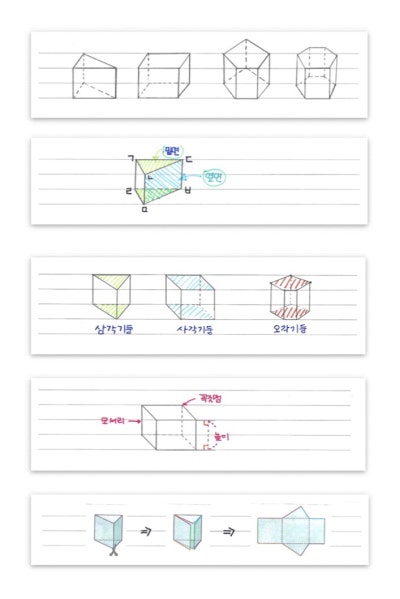 밑면
ㄱ ㄷ
ㄴ
옆면
ㄹ ㅂ
ㅁ
삼각기둥 사각기둥 오각기둥
꼭짓점
모서리
높이